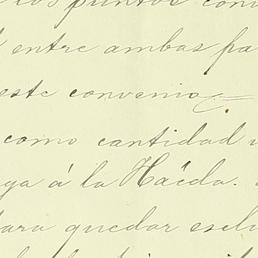 los puntos con
entre ambas pa
este convenio
como cantidad
ga á la Haćda.
para quedar escl